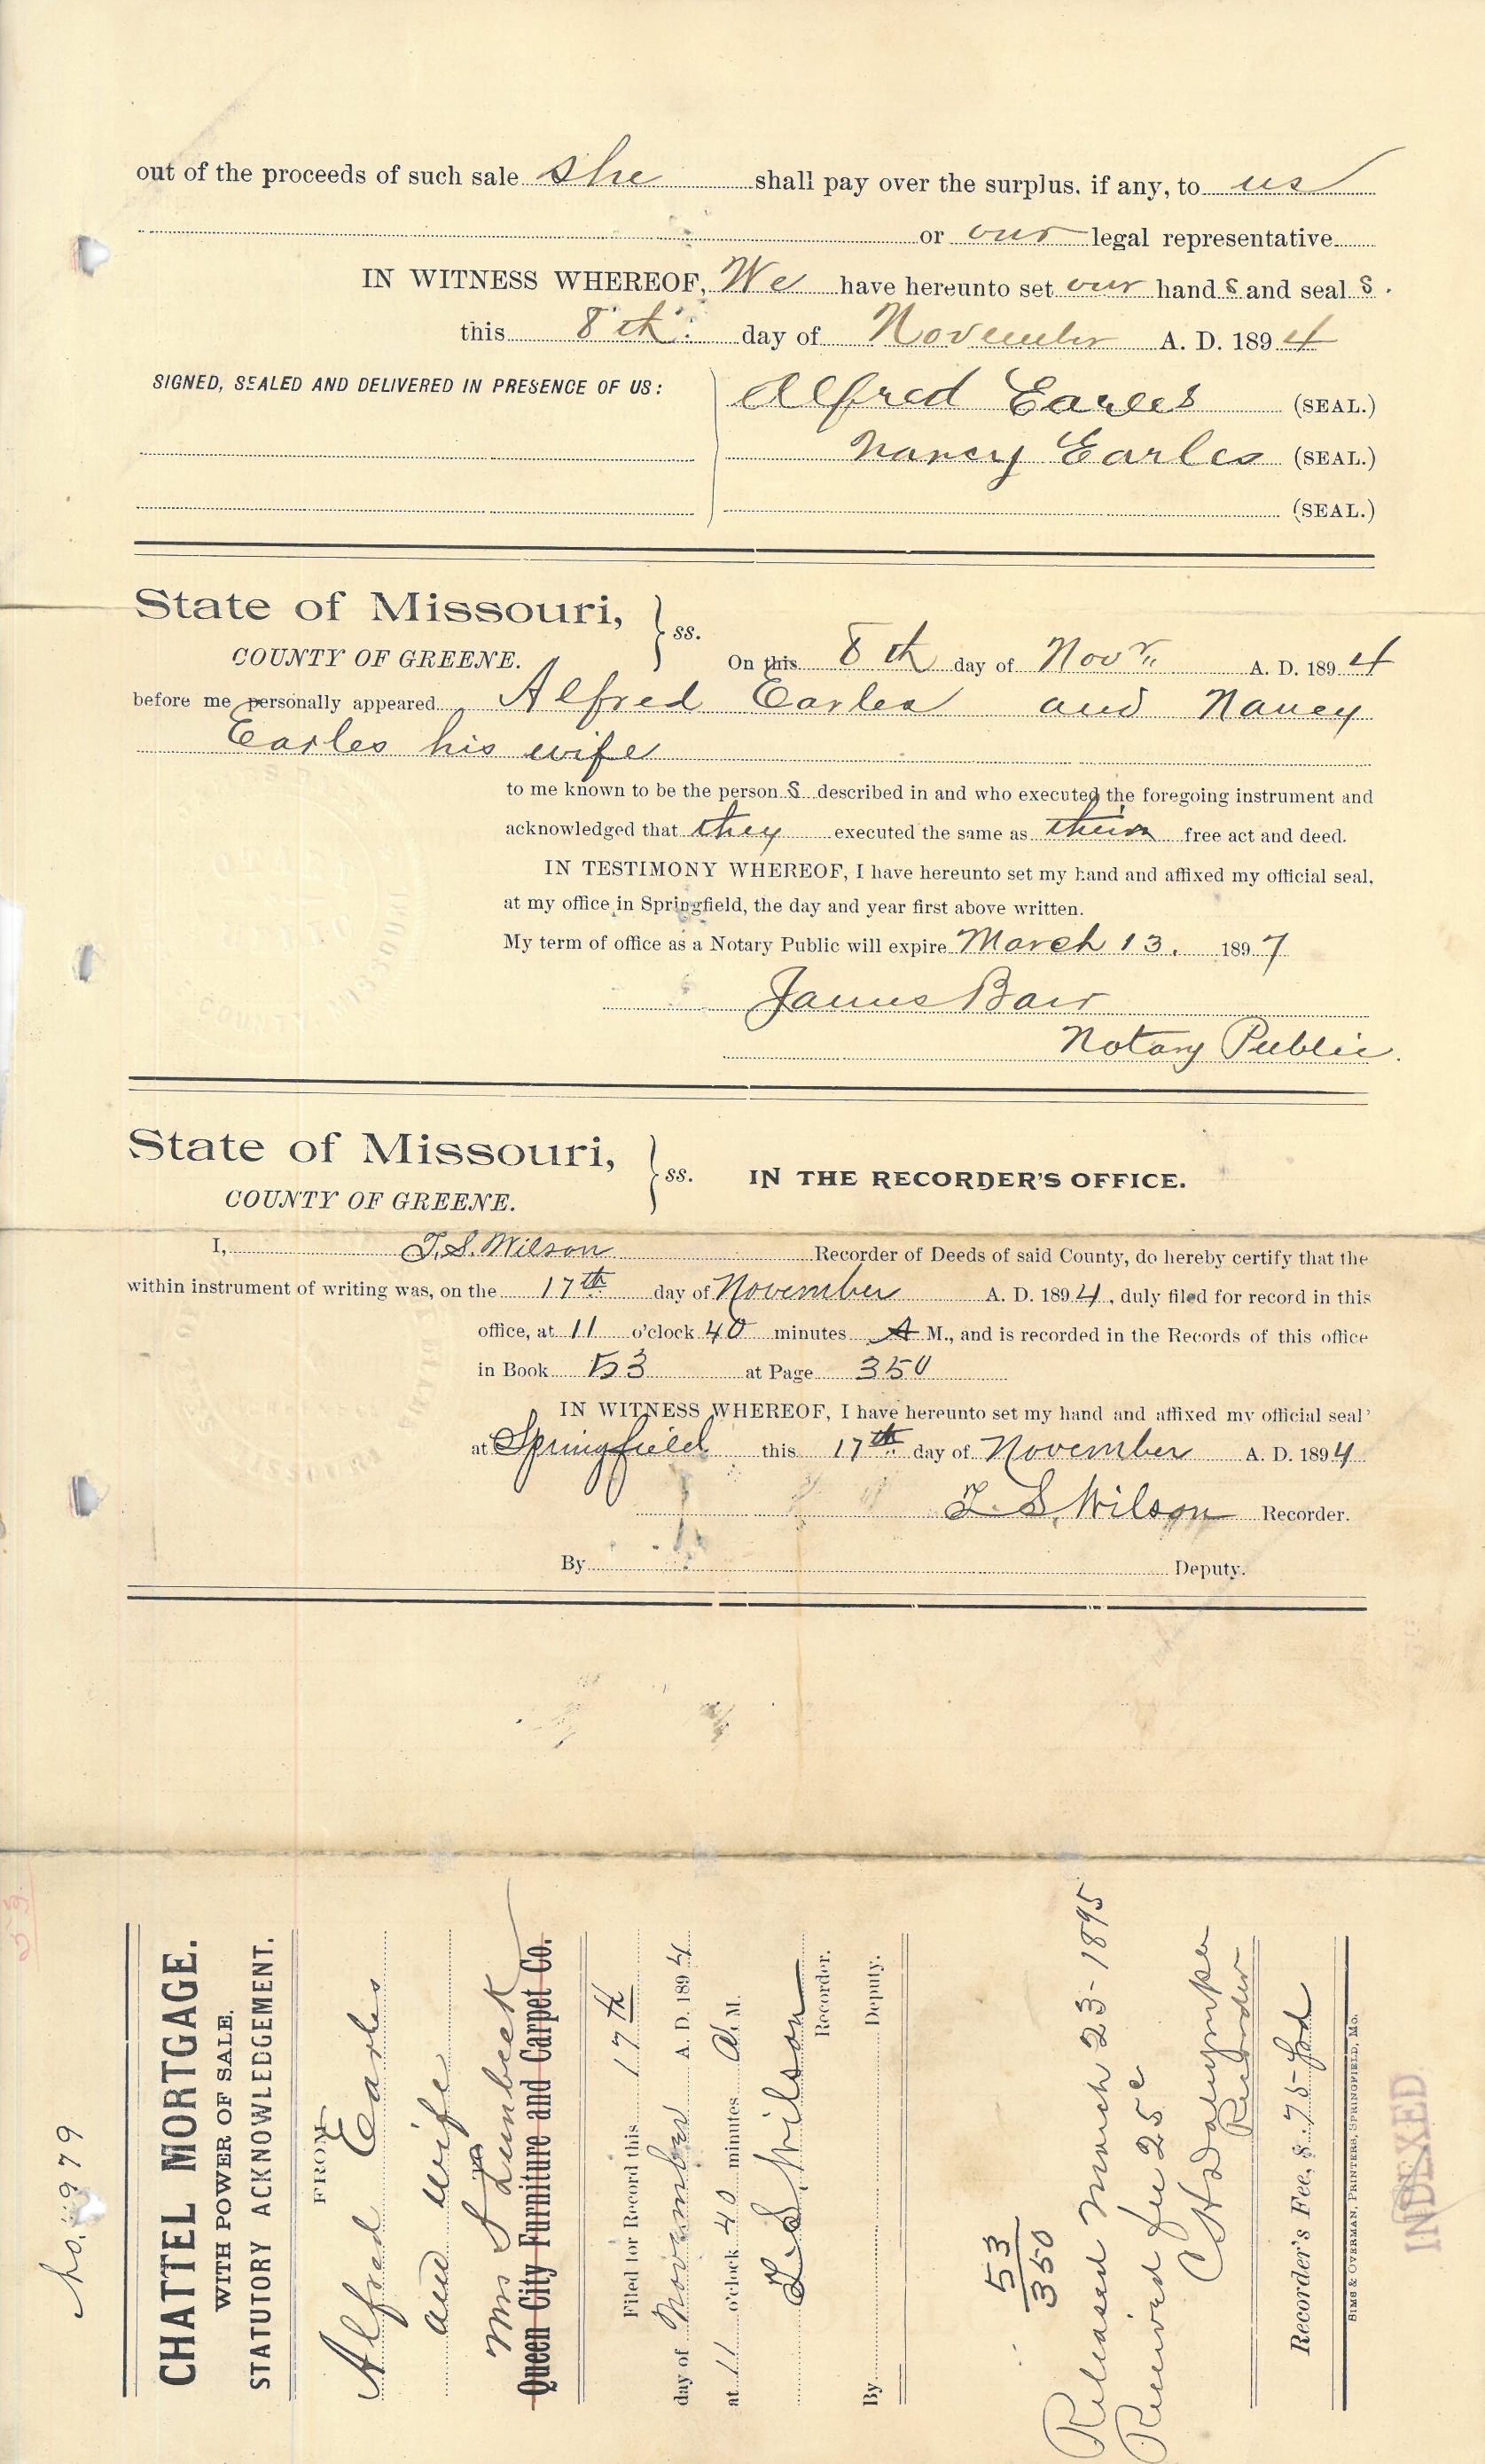 out of the proceeds of such sale she shall pay over the surplus, if any, to us
or our legal representative
IN WITNESS WHEREOF, We have hereunto set our hand s and seal s.
this 8th day of November A. D. 1894
SIGNED, SEALED AND DELIVERED IN PRESENCE OF US:
Alfred Earles (SEAL.)
Nancy Earles (SEAL.)
(SEAL.)
State of Missouri,
COUNTY OF GREENE. ss.
On this 8th day of Novr A. D. 1894
before me personally appeared Alfred Earles and Nancy
Earles his wife
to me known to be the person s described in and who executed the foregoing instrument and
acknowledged that they executed the same as their free act and deed.
IN TESTIMONY WHEREOF, I have hereunto set my hand and affixed my official seal,
at my office in Springfield, the day and year first above written.
My term of office as a Notary Public will expire March 13. 1897
James Barr
Notary Public.
State of Missouri,
COUNTY OF GREENE. ss.
IN THE RECORDER'S OFFICE.
I, T. S. Wilson Recorder of Deeds of said County, do hereby certify that the
within instrument of writing was, on the 17th day of November A. D. 1894, duly filed for record in this
office, at 11 o'clock 40 minutes A M., and is recorded in the Records of this office
in Book 53 at Page 350
IN WITNESS WHEREOF, I have hereunto set my hand and affixed my official seal
at Springfield this 17th day of November A. D. 1894
T. S. Wilson Recorder.
By Deputy.
No. 9979
CHATTEL MORTGAGE.
WITH POWER OF SALE.
STATUTORY ACKNOWLEDGEMENT.
FROM
Alfred Earles
and wife
TO
Mrs S Lumbeck
Queen City Furniture and Carpet Co.
Filed for Record this 17th
day of November A. D. 1894
at 11 o'clock 40 minutes A. M.
T. S. Wilson
Recorder.
By Deputy.
53
350
Released March 23-1895
Received fee 25c
C H Dalrymple
Recorder
Recorder's Fee, $ .75 pd
SIMS & OVERMAN, PRINTERS, SPRINGFIELD, MO.
INDEXED